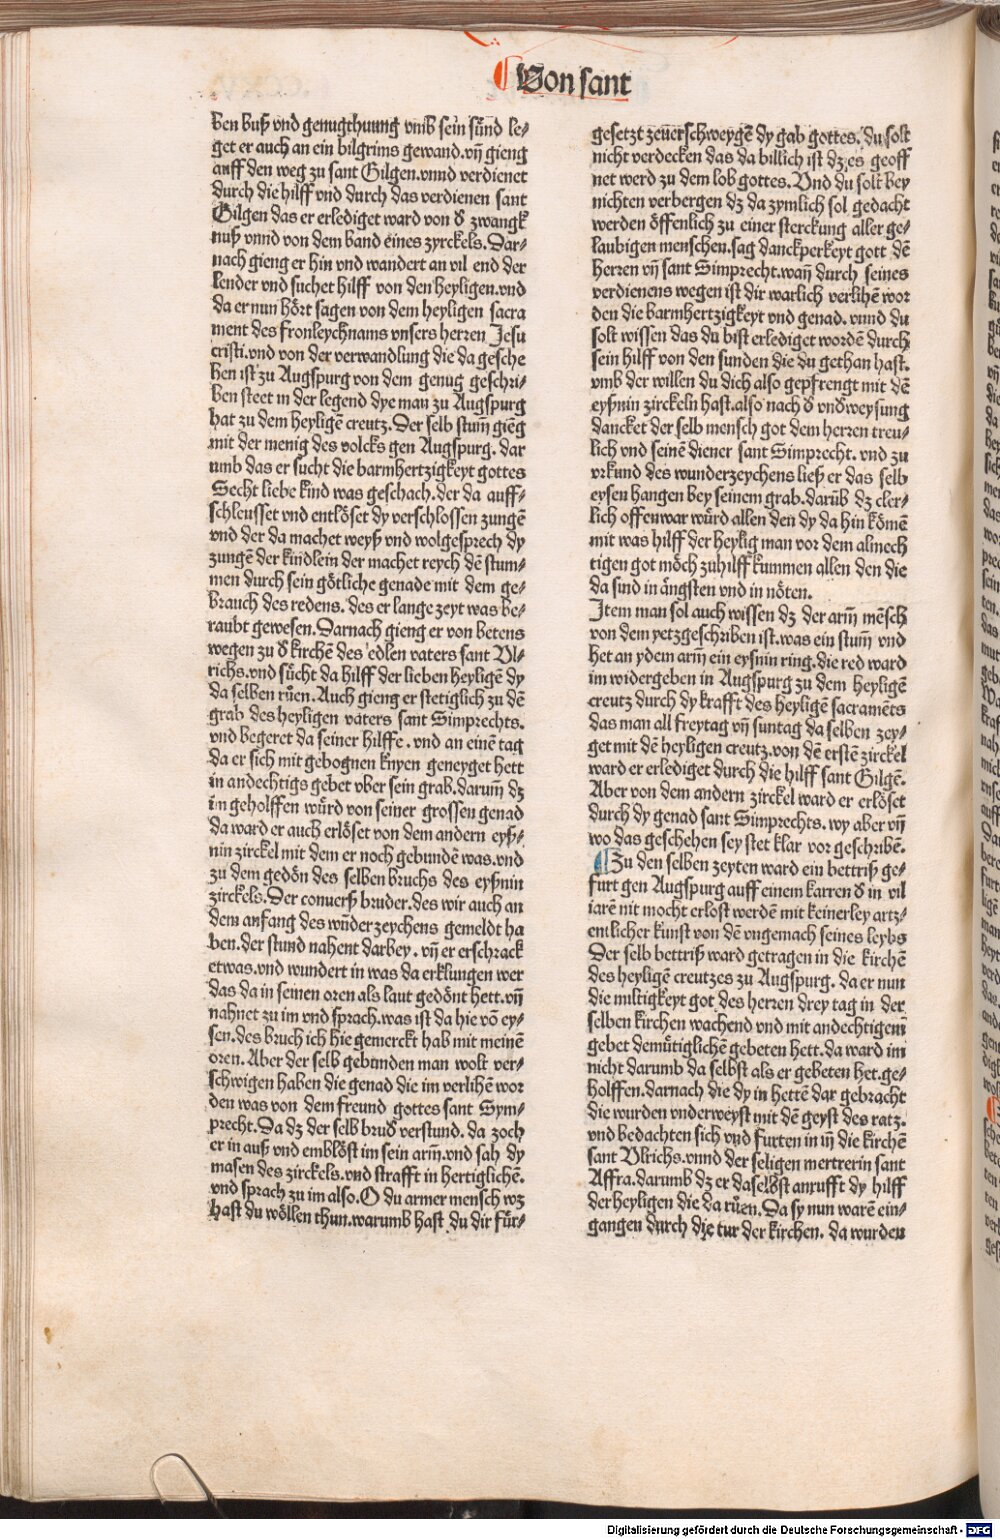 Von sant
ben buß vnd genugthuung vmb sein sünd le-
get er auch an ein bilgrims gewand. vñ gieng
auff den weg zu sant Gilgen. vnnd verdienet
durch die hilff vnd durch das verdienen sant
Gilgen das er erlediget ward von ď zwangk
nuß vnnd von dem band eines zyrckels. Dar-
nach gieng er hin vnd wandert an vil end der
lender vnd suchet hilff von den heyligen. vnd
da er nun hört sagen von dem heyligen sacra
ment des fronleychnams vnsers herren Jesu
cristi. vnd von der verwandlung die da gesche
hen ist zu Augspurg von dem genug geschri-
ben steet in der legend dye man zu Augspurg
hat zu dem heyligē creutz. Der selb stum̄ giēg
mit der menig des volcks gen Augspurg. dar
umb das er sucht die barmhertzigkeyt gottes
Secht liebe kind was geschach. der da auff-
schleusset vnd entlöset dy verschlossen zungē
vnd der da machet weyß vnd wolgesprech dy
zungē der kindlein der machet reych dē stum-
men durch sein götliche genade mit dem ge-
brauch des redens. des er lange zeyt was be-
raubt gewesen. Darnach gieng er von betens
wegen zu ď kirchē des edlen vaters sant Vl-
richs. vnd sücht da hilff der lieben heyligē dy
da selben růen. Auch gieng er stetiglich zu dē
grab des heyligen vaters sant Simprechts.
vnd begeret da seiner hilffe. vnd an einē tag
da er sich mit gebognen knyen geneyget hett
in andechtigs gebet vber sein grab. darum̄ dz
im geholffen würd von seiner grossen genad
da ward er auch erlöset von dem andern eyß-
nin zirckel mit dem er noch gebundē was. vnd
zu dem gedön des selben bruchs des eyßnin
zirckels. Der conuerß bruder. des wir auch an
dem anfang des wūderzeychens gemeldt ha
ben. der stund nahent darbey. vñ er erschrack
etwas. vnd wundert in was da erklungen wer
das da in seinen oren als laut gedönt hett. vñ
nahnet zu im vnd sprach. was ist da hie vō ey-
sen. des bruch ich hie gemerckt hab mit meinē
oren. Aber der selb gebunden man wolt ver-
schwigen haben die genad die im verlihē wor
den was von dem freund gottes sant Sym-
precht. Da dz der selb bruď verstund. da zoch
er in auß vnd emblöst im sein arm. vnd sah dy
masen des zirckels. vnd strafft in hertiglichē.
vnd sprach zu im also. O du armer mensch wz
hast du wöllen thun. warumb hast du dir für-
gesetzt zeuerschweygē dy gab gottes. du solt
nicht verdecken das da billich ist dz es geoff
net werd zu dem lob gottes. Vnd du solt bey
nichten verbergen dz da zymlich sol gedacht
werden öffenlich zu einer sterckung aller ge-
laubigen menschen. sag danckperkeyt gott dē
herren vñ sant Simprecht. wañ durch seines
verdienens wegen ist dir warlich verlihē wor
den die barmhertzigkeyt vnd genad. vnnd du
solt wissen das du bist erlediget wordē durch
sein hilff von den sunden die du gethan hast.
vmb der willen du dich also gepfrengt mit dē
eyßnin zirckeln hast. also nach ď vnďweysung
dancket der selb mensch got dem herren treu-
lich vnd seinē diener sant Simprecht. vnd zu
vrkund des wunderzeychens ließ er das selb
eysen hangen bey seinem grab. darūb dz cler-
lich offenwar würd allen den dy da hin kömē
mit was hilff der heylig man vor dem almech
tigen got möch zuhilff kummen allen den die
da sind in ängsten vnd in nöten.
Item man sol auch wissen dz der arm̄ mēsch
von dem yetzgeschriben ist. was ein stum̄ vnd
het an ydem arm̄ ein eysnin ring. die red ward
im widergeben in Augspurg zu dem heyligē
creutz durch dy krafft des heyligē sacramēts
das man all freytag vñ suntag da selben zey-
get mit dē heyligen creutz. von dē erstē zirckel
ward er erlediget durch die hilff sant Gilgē.
Aber von dem andern zirckel ward er erlöset
durch dy genad sant Simprechts. wy aber vñ
wo das geschehen sey stet klar vor geschribē.
Zu den selben zeyten ward ein bettriß ge-
furt gen Augspurg auff einem karren ď in vil
iarē nit mocht erlost werdē mit keinerley artz-
entlicher kunst von dē vngemach seines leybs
Der selb bettriß ward getragen in die kirchē
des heyligē creutzes zu Augspurg. da er nun
die miltigkeyt got des herren drey tag in der
selben kirchen wachend vnd mit andechtigem
gebet demütiglichē gebeten hett. da ward im
nicht darumb da selbst als er gebeten het. ge-
holffen. darnach die dy in hettē dar gebracht
die wurden vnderweyst mit dē geyst des ratz.
vnd bedachten sich vnd furten in in die kirchē
sant Vlrichs. vnnd der seligen mertrerin sant
Affra. darumb dz er daselbst anrufft dy hilff
der heyligen die da růen. Da sy nun warē ein-
gangen durch die tur der kirchen. da wurden
Digitalisierung gefördert durch die Deutsche Forschungsgemeinschaft - DFG